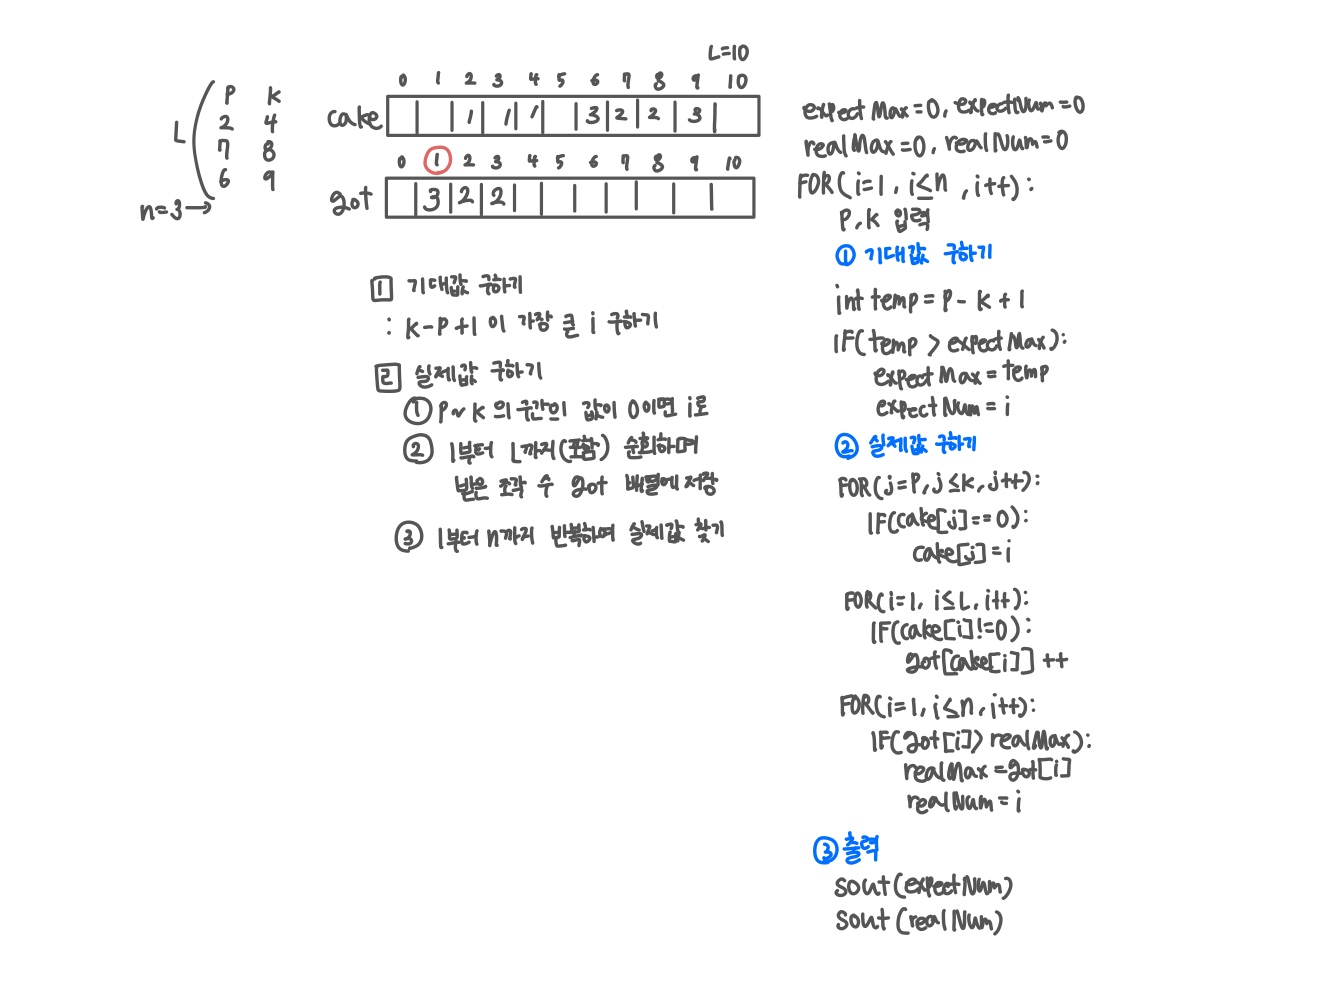 P K
L
2 4
7 8
6 9
n=3→
L=10
0 1 2 3 4 5 6 7 8 9 10
cake 1 1 1 3 2 2 3
0 1 2 3 4 5 6 7 8 9 10
got 3 2 2
1 기대값 구하기
: K-P+1 이 가장 큰 i 구하기
2 실제값 구하기
① P~K 의 구간의 값이 0이면 i로
② 1부터 L까지(포함) 순회하며
받은 조각 수 got 배열에 저장
③ 1부터 n까지 반복하여 실제값 찾기
expectMax=0, expectNum=0
realMax=0, realNum=0
FOR(i=1, i≤n, i++):
P,K 입력
① 기대값 구하기
int temp = P - K + 1
IF(temp > expectMax):
expectMax = temp
expectNum = i
② 실제값 구하기
FOR(j=P, j≤K, j++):
IF(cake[j]==0):
cake[j]=i
FOR(i=1, i≤L, i++):
IF(cake[i]!=0):
got[cake[i]]++
FOR(i=1, i≤n, i++):
IF(got[i]>realMax):
realMax=got[i]
realNum=i
③ 출력
sout(expectNum)
sout(realNum)